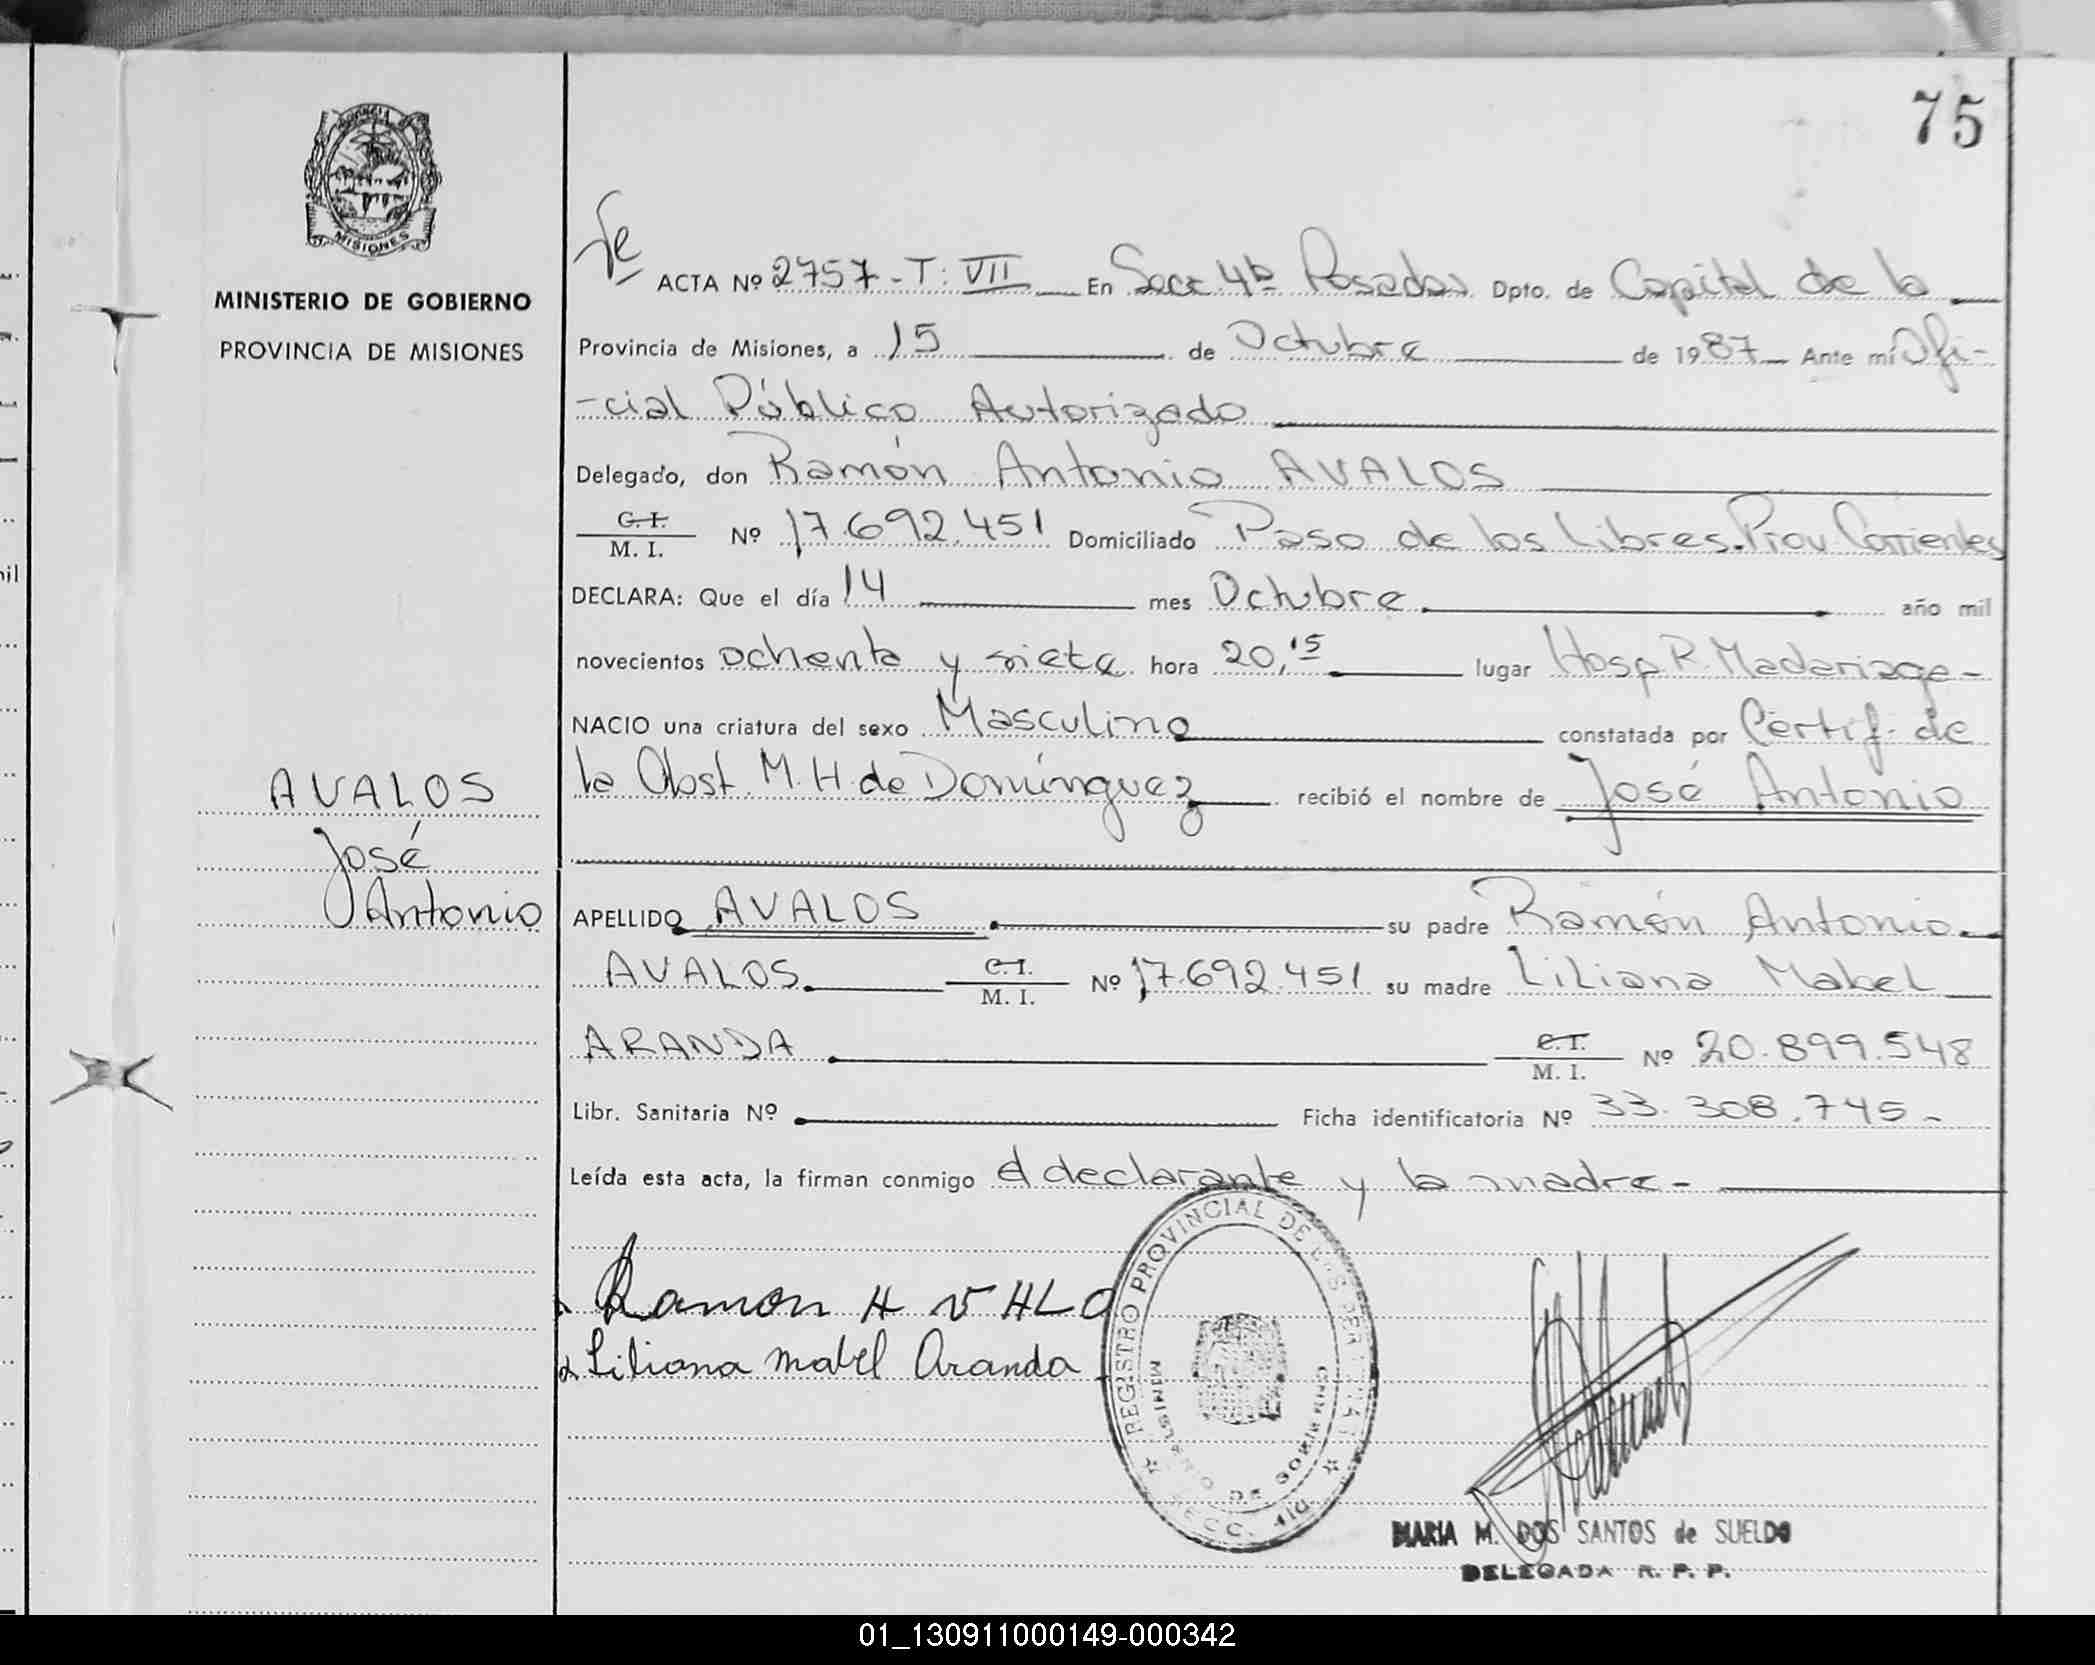 75
PROVINCIA
MISIONES
MINISTERIO DE GOBIERNO
PROVINCIA DE MISIONES
AVALOS
José
Antonio
ACTA Nº 2757-T: VII En Secc 4ta Posadas Dpto. de Capital de la
Provincia de Misiones, a 15 de Octubre de 1987 Ante mí Ofi-
-cial Público Autorizado
Delegado, don Ramón Antonio AVALOS
C. I. / M. I. Nº 17.692.451 Domiciliado Paso de los Libres. Prov Corrientes
DECLARA: Que el día 14 mes Octubre año mil
novecientos ochenta y siete hora 20,15 lugar Hosp. R. Madariaga-
NACIO una criatura del sexo Masculino constatada por Certif. de
la Obst. M. H. de Domínguez recibió el nombre de José Antonio
APELLIDO AVALOS su padre Ramón Antonio
AVALOS C. I. / M. I. Nº 17.692.451 su madre Liliana Mabel
ARANDA C. I. / M. I. Nº 20.899.548
Libr. Sanitaria Nº Ficha identificatoria Nº 33.308.745-
Leída esta acta, la firman conmigo el declarante y la madre-
Ramon A VALO
Liliana mabel Aranda
REGISTRO PROVINCIAL DE LAS PERSONAS
MINISTERIO DE GOBIERNO
SECC. 4ta
MARIA M. DOS SANTOS de SUELDO
DELEGADA R. P. P.
01_130911000149-000342